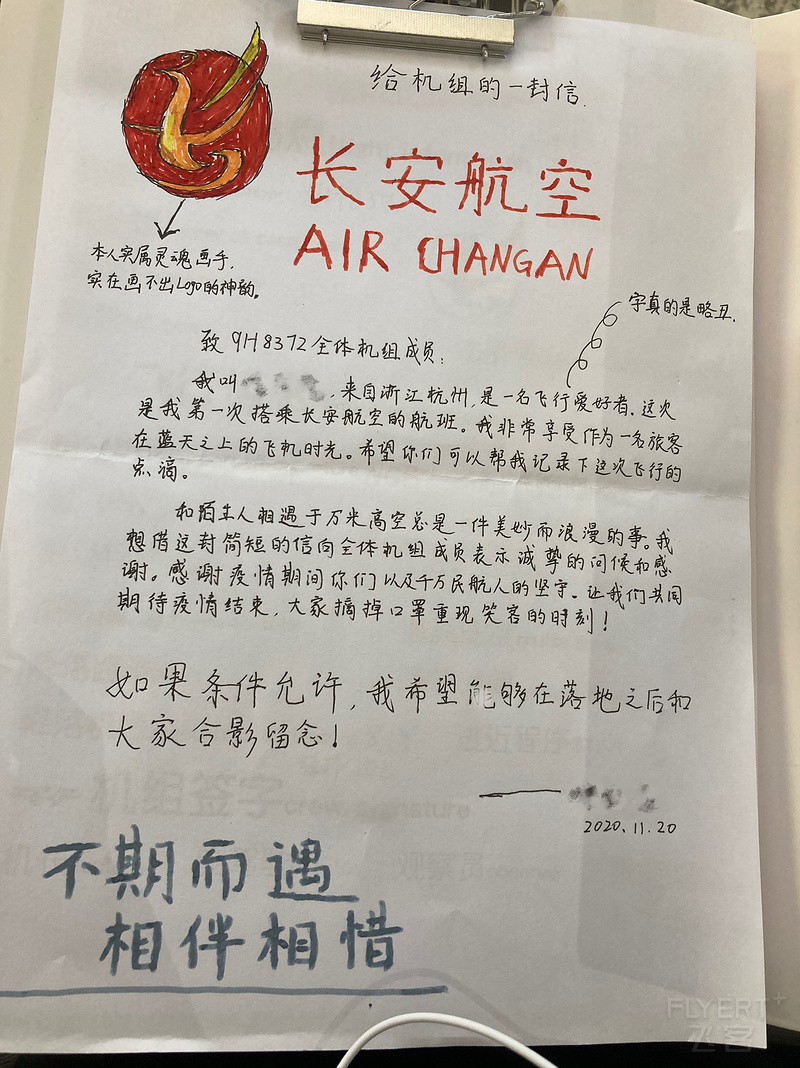 给机组的一封信.
长安航空
AIR CHANGAN
本人实属灵魂画手.
实在画不出Logo的神韵。
字真的是略丑.
致9H8372全体机组成员:
我叫 ,来自浙江杭州,是一名飞行爱好者.这次
是我第一次搭乘长安航空的航班。我非常享受作为一名旅客
在蓝天之上的飞机时光。希望你们可以帮我记录下这次飞行的
点滴。
和陌生人相遇于万米高空总是一件美妙而浪漫的事。我
想借这封简短的信向全体机组成员表示诚挚的问候和感
谢。感谢疫情期间你们以及千万民航人的坚守。让我们共同
期待疫情结束,大家摘掉口罩重现笑容的时刻!
如果条件允许,我希望能够在落地之后和
大家合影留念!
2020.11.20
不期而遇
相伴相惜
机组签字crew signature
观察员
FLYERT+
飞客